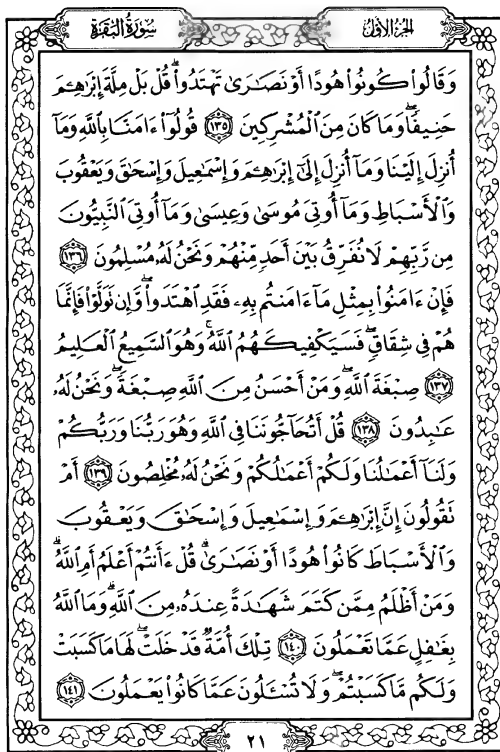 سُورَةُ البَقَرَةِ
الجُزْءُ الأَوَّلُ
وَقَالُوا۟ كُونُوا۟ هُودًا أَوْ نَصَٰرَىٰ تَهْتَدُوا۟ ۗ قُلْ بَلْ مِلَّةَ إِبْرَٰهِۦمَ
حَنِيفًا ۖ وَمَا كَانَ مِنَ ٱلْمُشْرِكِينَ ١٣٥ قُولُوٓا۟ ءَامَنَّا بِٱللَّهِ وَمَآ
أُنزِلَ إِلَيْنَا وَمَآ أُنزِلَ إِلَىٰٓ إِبْرَٰهِۦمَ وَإِسْمَٰعِيلَ وَإِسْحَٰقَ وَيَعْقُوبَ
وَٱلْأَسْبَاطِ وَمَآ أُوتِىَ مُوسَىٰ وَعِيسَىٰ وَمَآ أُوتِىَ ٱلنَّبِيُّونَ
مِن رَّبِّهِمْ لَا نُفَرِّقُ بَيْنَ أَحَدٍ مِّنْهُمْ وَنَحْنُ لَهُۥ مُسْلِمُونَ ١٣٦
فَإِنْ ءَامَنُوا۟ بِمِثْلِ مَآ ءَامَنتُم بِهِۦ فَقَدِ ٱهْتَدَوا۟ ۖ وَّإِن تَوَلَّوْا۟ فَإِنَّمَا
هُمْ فِى شِقَاقٍ ۖ فَسَيَكْفِيكَهُمُ ٱللَّهُ ۚ وَهُوَ ٱلسَّمِيعُ ٱلْعَلِيمُ
١٣٧ صِبْغَةَ ٱللَّهِ ۖ وَمَنْ أَحْسَنُ مِنَ ٱللَّهِ صِبْغَةً ۖ وَنَحْنُ لَهُۥ
عَٰبِدُونَ ١٣٨ قُلْ أَتُحَآجُّونَنَا فِى ٱللَّهِ وَهُوَ رَبُّنَا وَرَبُّكُمْ
وَلَنَآ أَعْمَٰلُنَا وَلَكُمْ أَعْمَٰلُكُمْ وَنَحْنُ لَهُۥ مُخْلِصُونَ ١٣٩ أَمْ
تَقُولُونَ إِنَّ إِبْرَٰهِۦمَ وَإِسْمَٰعِيلَ وَإِسْحَٰقَ وَيَعْقُوبَ
وَٱلْأَسْبَاطَ كَانُوا۟ هُودًا أَوْ نَصَٰرَىٰ ۗ قُلْ ءَأَنتُمْ أَعْلَمُ أَمِ ٱللَّهُ ۗ
وَمَنْ أَظْلَمُ مِمَّن كَتَمَ شَهَٰدَةً عِندَهُۥ مِنَ ٱللَّهِ ۗ وَمَا ٱللَّهُ
بِغَٰفِلٍ عَمَّا تَعْمَلُونَ ١٤٠ تِلْكَ أُمَّةٌ قَدْ خَلَتْ ۖ لَهَا مَا كَسَبَتْ
وَلَكُم مَّا كَسَبْتُمْ ۖ وَلَا تُسْـَٔلُونَ عَمَّا كَانُوا۟ يَعْمَلُونَ ١٤١
٢١